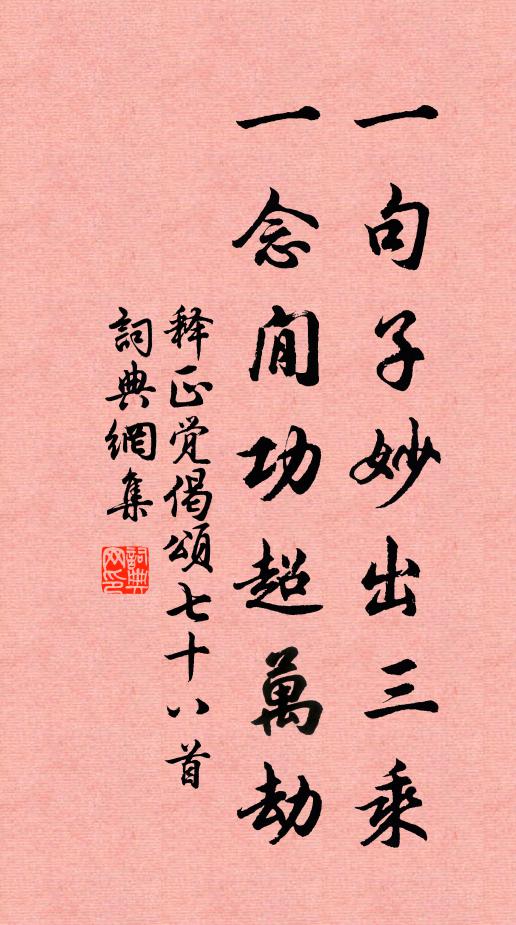 一句子妙出三乘
一念間功超萬劫
释正觉偈頌七十八首
詞典網集
詞典网印